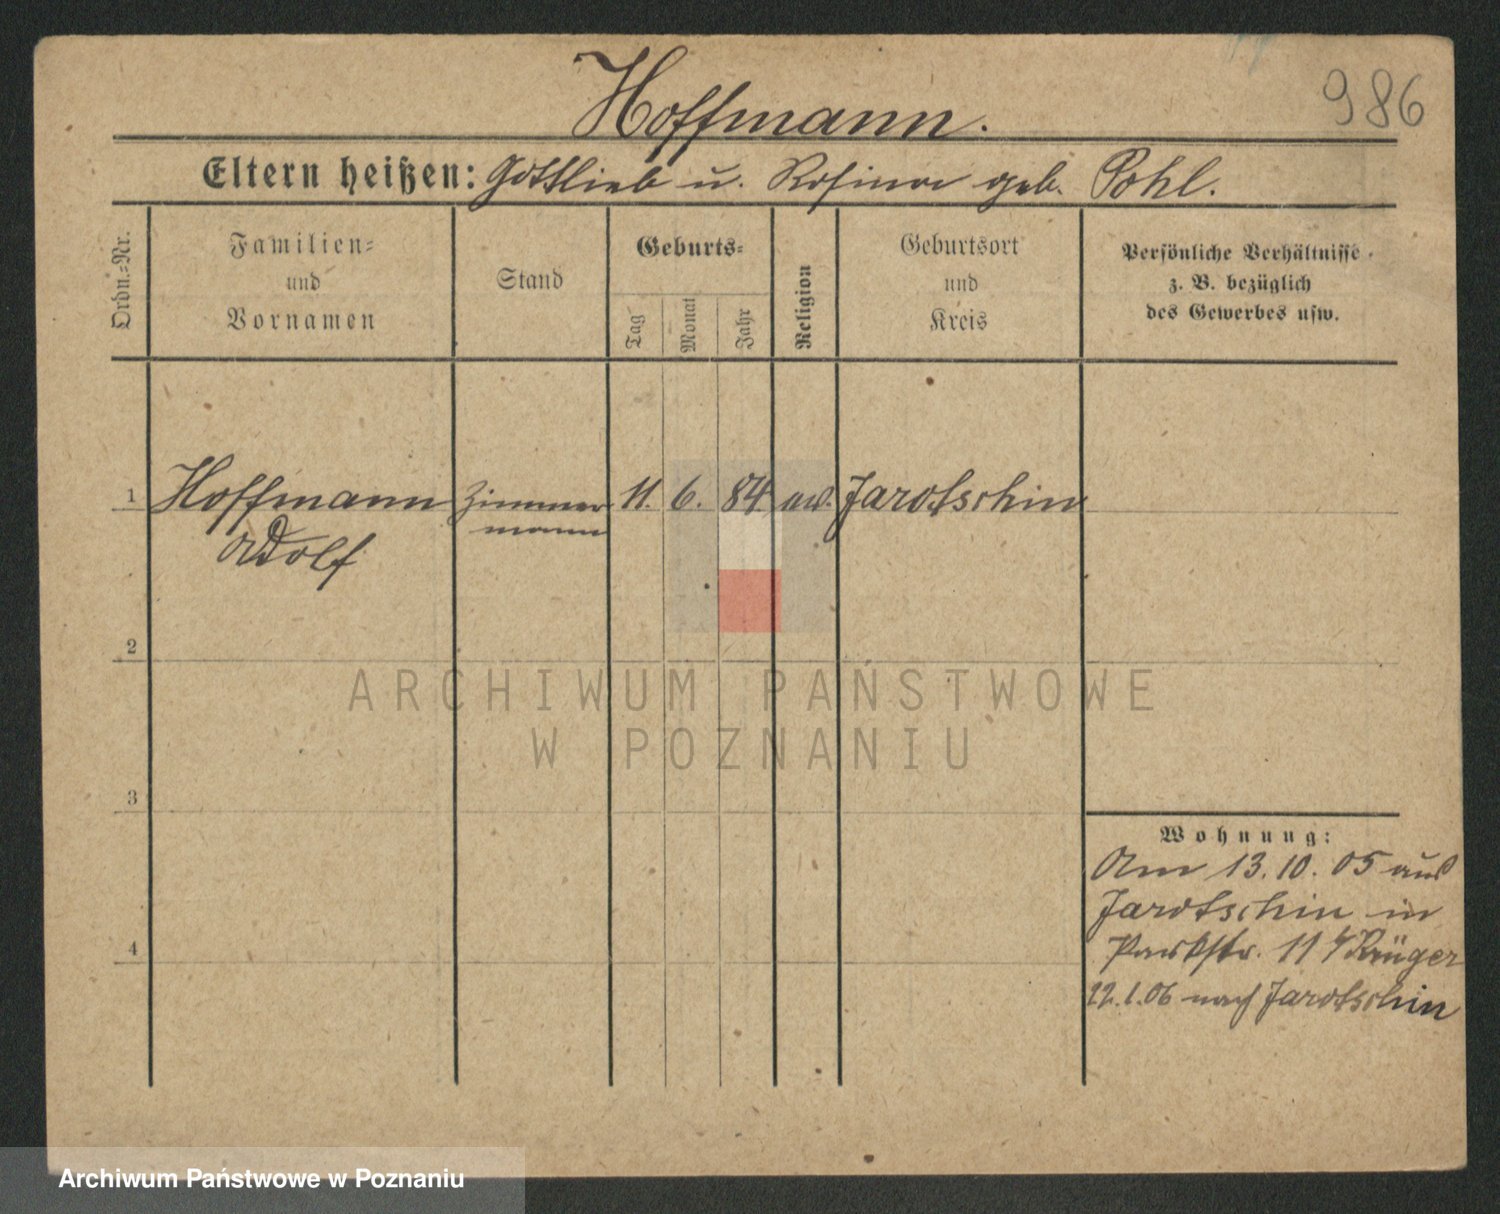 986
Hoffmann.
Eltern heißen: Gottlieb u. Rosina geb. Pohl.
Ordn.-Nr.
Familien-
und
Vornamen
Stand
Geburts-
Tag
Monat
Jahr
Religion
Geburtsort
und
Kreis
Persönliche Verhältnisse
z. B. bezüglich
des Gewerbes usw.
1 Hoffmann Zimmer 11. 6. 84 ev. Jarotschin
Adolf mann
2
3
4
Wohnung:
Am 13.10.05 aus
Jarotschin in
Parkstr. 11 b/ Krüger
12.1.06 nach Jarotschin
ARCHIWUM PAŃSTWOWE
W POZNANIU
Archiwum Państwowe w Poznaniu